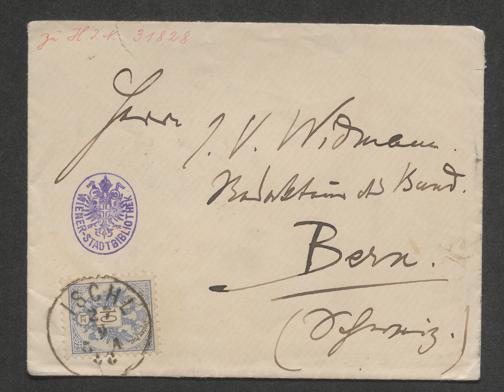 zu H.I.N. 31828
Herrn
J. V. Widmann.
Redakteur des Bund.
Bern.
(Schweiz.)
WIENER-STADTBIBLIOTHEK
ISCHL
10